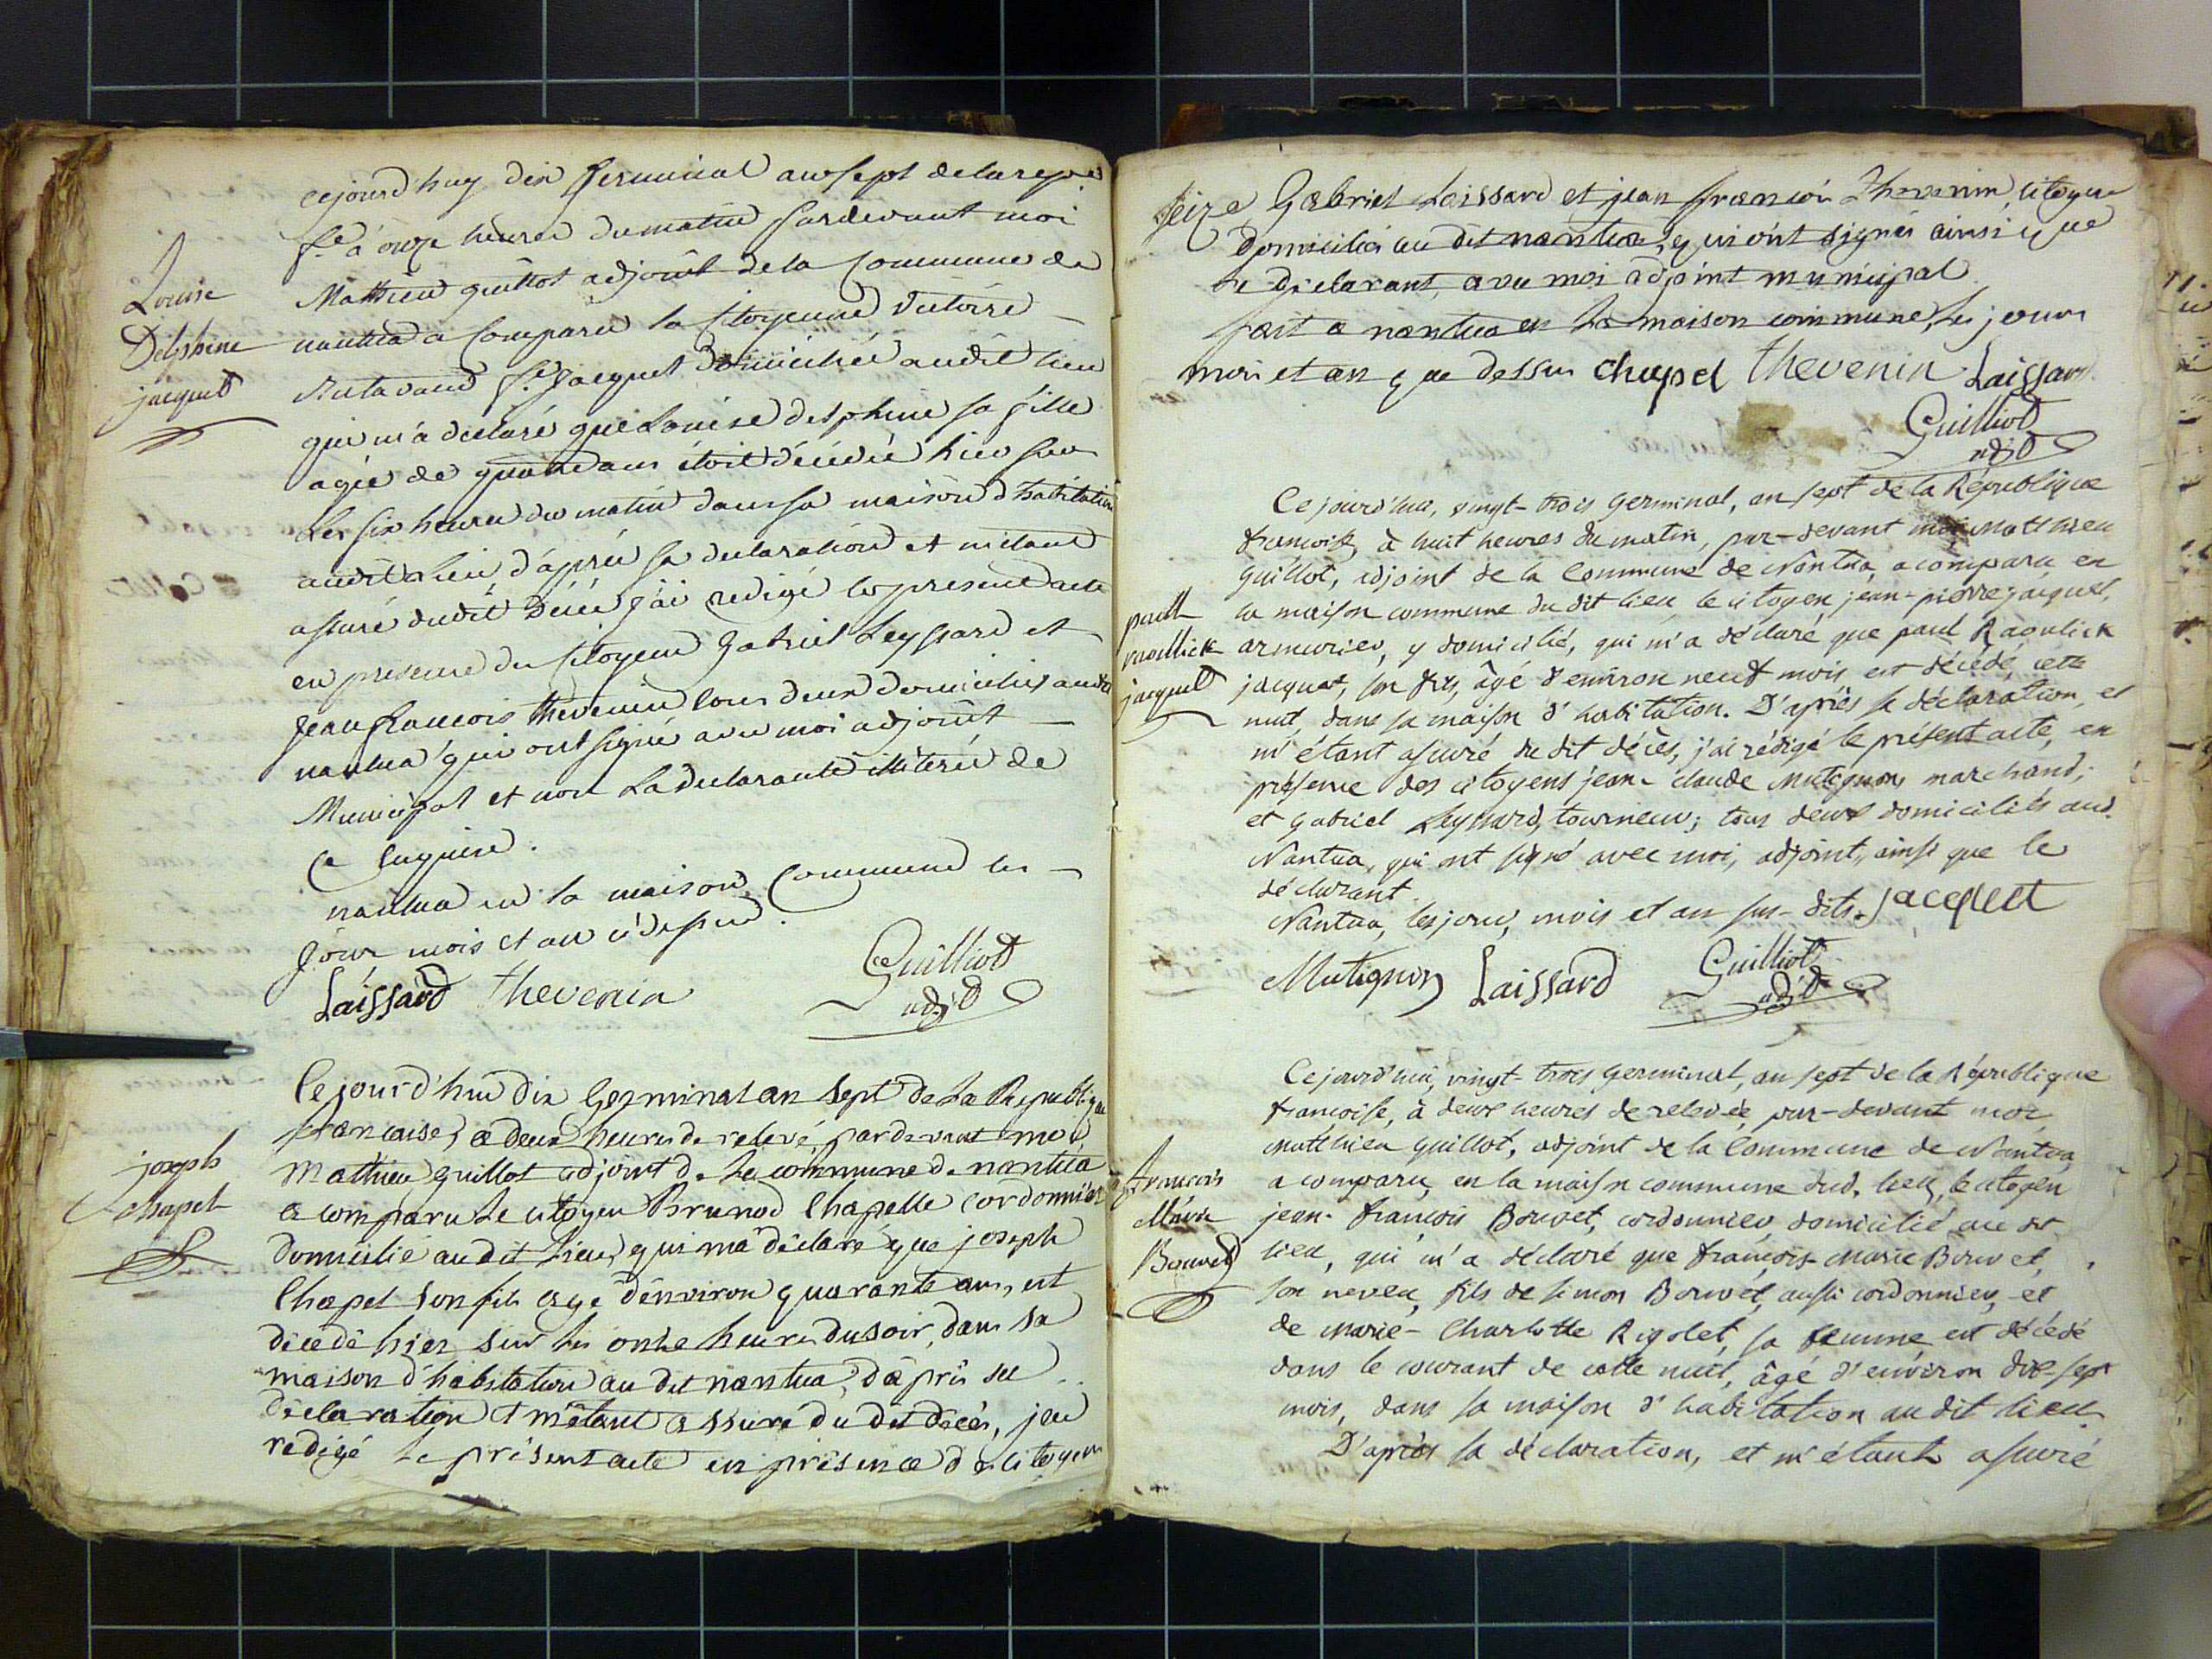 Louise
Delphine
jacquet
cejourd'huy dix Germinal an sept de la rep.
f.se à onze heures du matin pardevant moi
Mathieu guillot adjoint de la Commune de
nantua a Comparu la Citoyenne Victoire
f.e Jacquet domiciliée audit lieu
qui m'a déclaré que Louise delphine sa fille
agée de quatre ans étoit décédée hier sur
les six heures du matin dans sa maison d'habitation
audit lieu, d'après sa declaration et m'etant
assuré dudit décès j'ai redigé le present acte
en presence du Citoyens Gabriel Leyssard et
Jean francois thevenin tous deux domiciliés audit
nantua qui ont signé avec moi adjoint
Municipal et non La declarante illiterée de
ce enquise.
nantua en la maison Commune les
jour mois et an ci dessus.
Laissard thevenin Guilliot
adj.t
joseph
chapel
Cejourd'hui dix Germinal an sept de La Republique
francaise, a deux heures de relevé, pardevant moi
Mathieu guillot adjoint de La commune de nantua
a comparu Le citoyen Brunod Chapelle Cordonnier
domicilié au dit Lieu, qui ma déclaré que joseph
Chapel son fils agé d'environ quarante ans, est
décedé hier sur les onze heures du soir, dans sa
maison d'habitation au dit nantua, d'après sa
déclaration et m'étant assuré du dit décès, jai
redigé le présent acte en présence des citoyens
seize Gabriel Laissard et jean françois Thevenin, citoyens
domiciliés au dit nantua, qui ont signés ainsi que
le déclarant, avec moi adjoint municipal
fait a nantua en La maison commune, les jours
mois et an que dessus chapel thevenin Laissard
Guilliot
adj.t
paul
raoullick
jacquet
Ce jourd'hui, vingt-trois germinal, an sept de la République
françoise, à huit heures du matin, par-devant moi Matthieu
guillot, adjoint de la Commune de Nantua, a comparu en
la maison commune du dit lieu, le citoyen jean-pierre jacquet,
armurier, y domicilié, qui m'a déclaré que paul Raoulick
jacquet, son fils, âgé d'environ neuf mois, est décédé, cette
nuit, dans sa maison d'habitation. D'après sa déclaration, et
m'étant assuré du dit décès, j'ai rédigé le présent acte, en
présence des citoyens jean-claude Mutignon, marchand;
et gabriel Leyssard, tourneur; tous deux domiciliés aud.
Nantua, qui ont signé avec moi, adjoint, ainsi que le
déclarant.
Nantua, les jour, mois et an sus-dits. jacquet
Mutignon Laissard Guilliot
adj.t
francois
Marie
Bouvet
Ce jourd'hui, vingt-trois germinal, an sept de la République
françoise, à deux heures de relevée, par-devant moi
Matthieu guillot, adjoint de la Commune de Nantua,
a comparu, en la maison commune dud. lieu, le citoyen
jean-françois Bouvet, cordonnier, domicilié au dit
lieu, qui m'a déclaré que françois-marie Bouvet,
son neveu, fils de simon Bouvet, aussi cordonnier, et
de marie-Charlotte Rigolet, sa femme, est décédé
dans le courant de cette nuit, âgé d'environ dix-sept
mois, dans sa maison d'habitation au dit lieu
D'après sa déclaration, et m'étant assuré